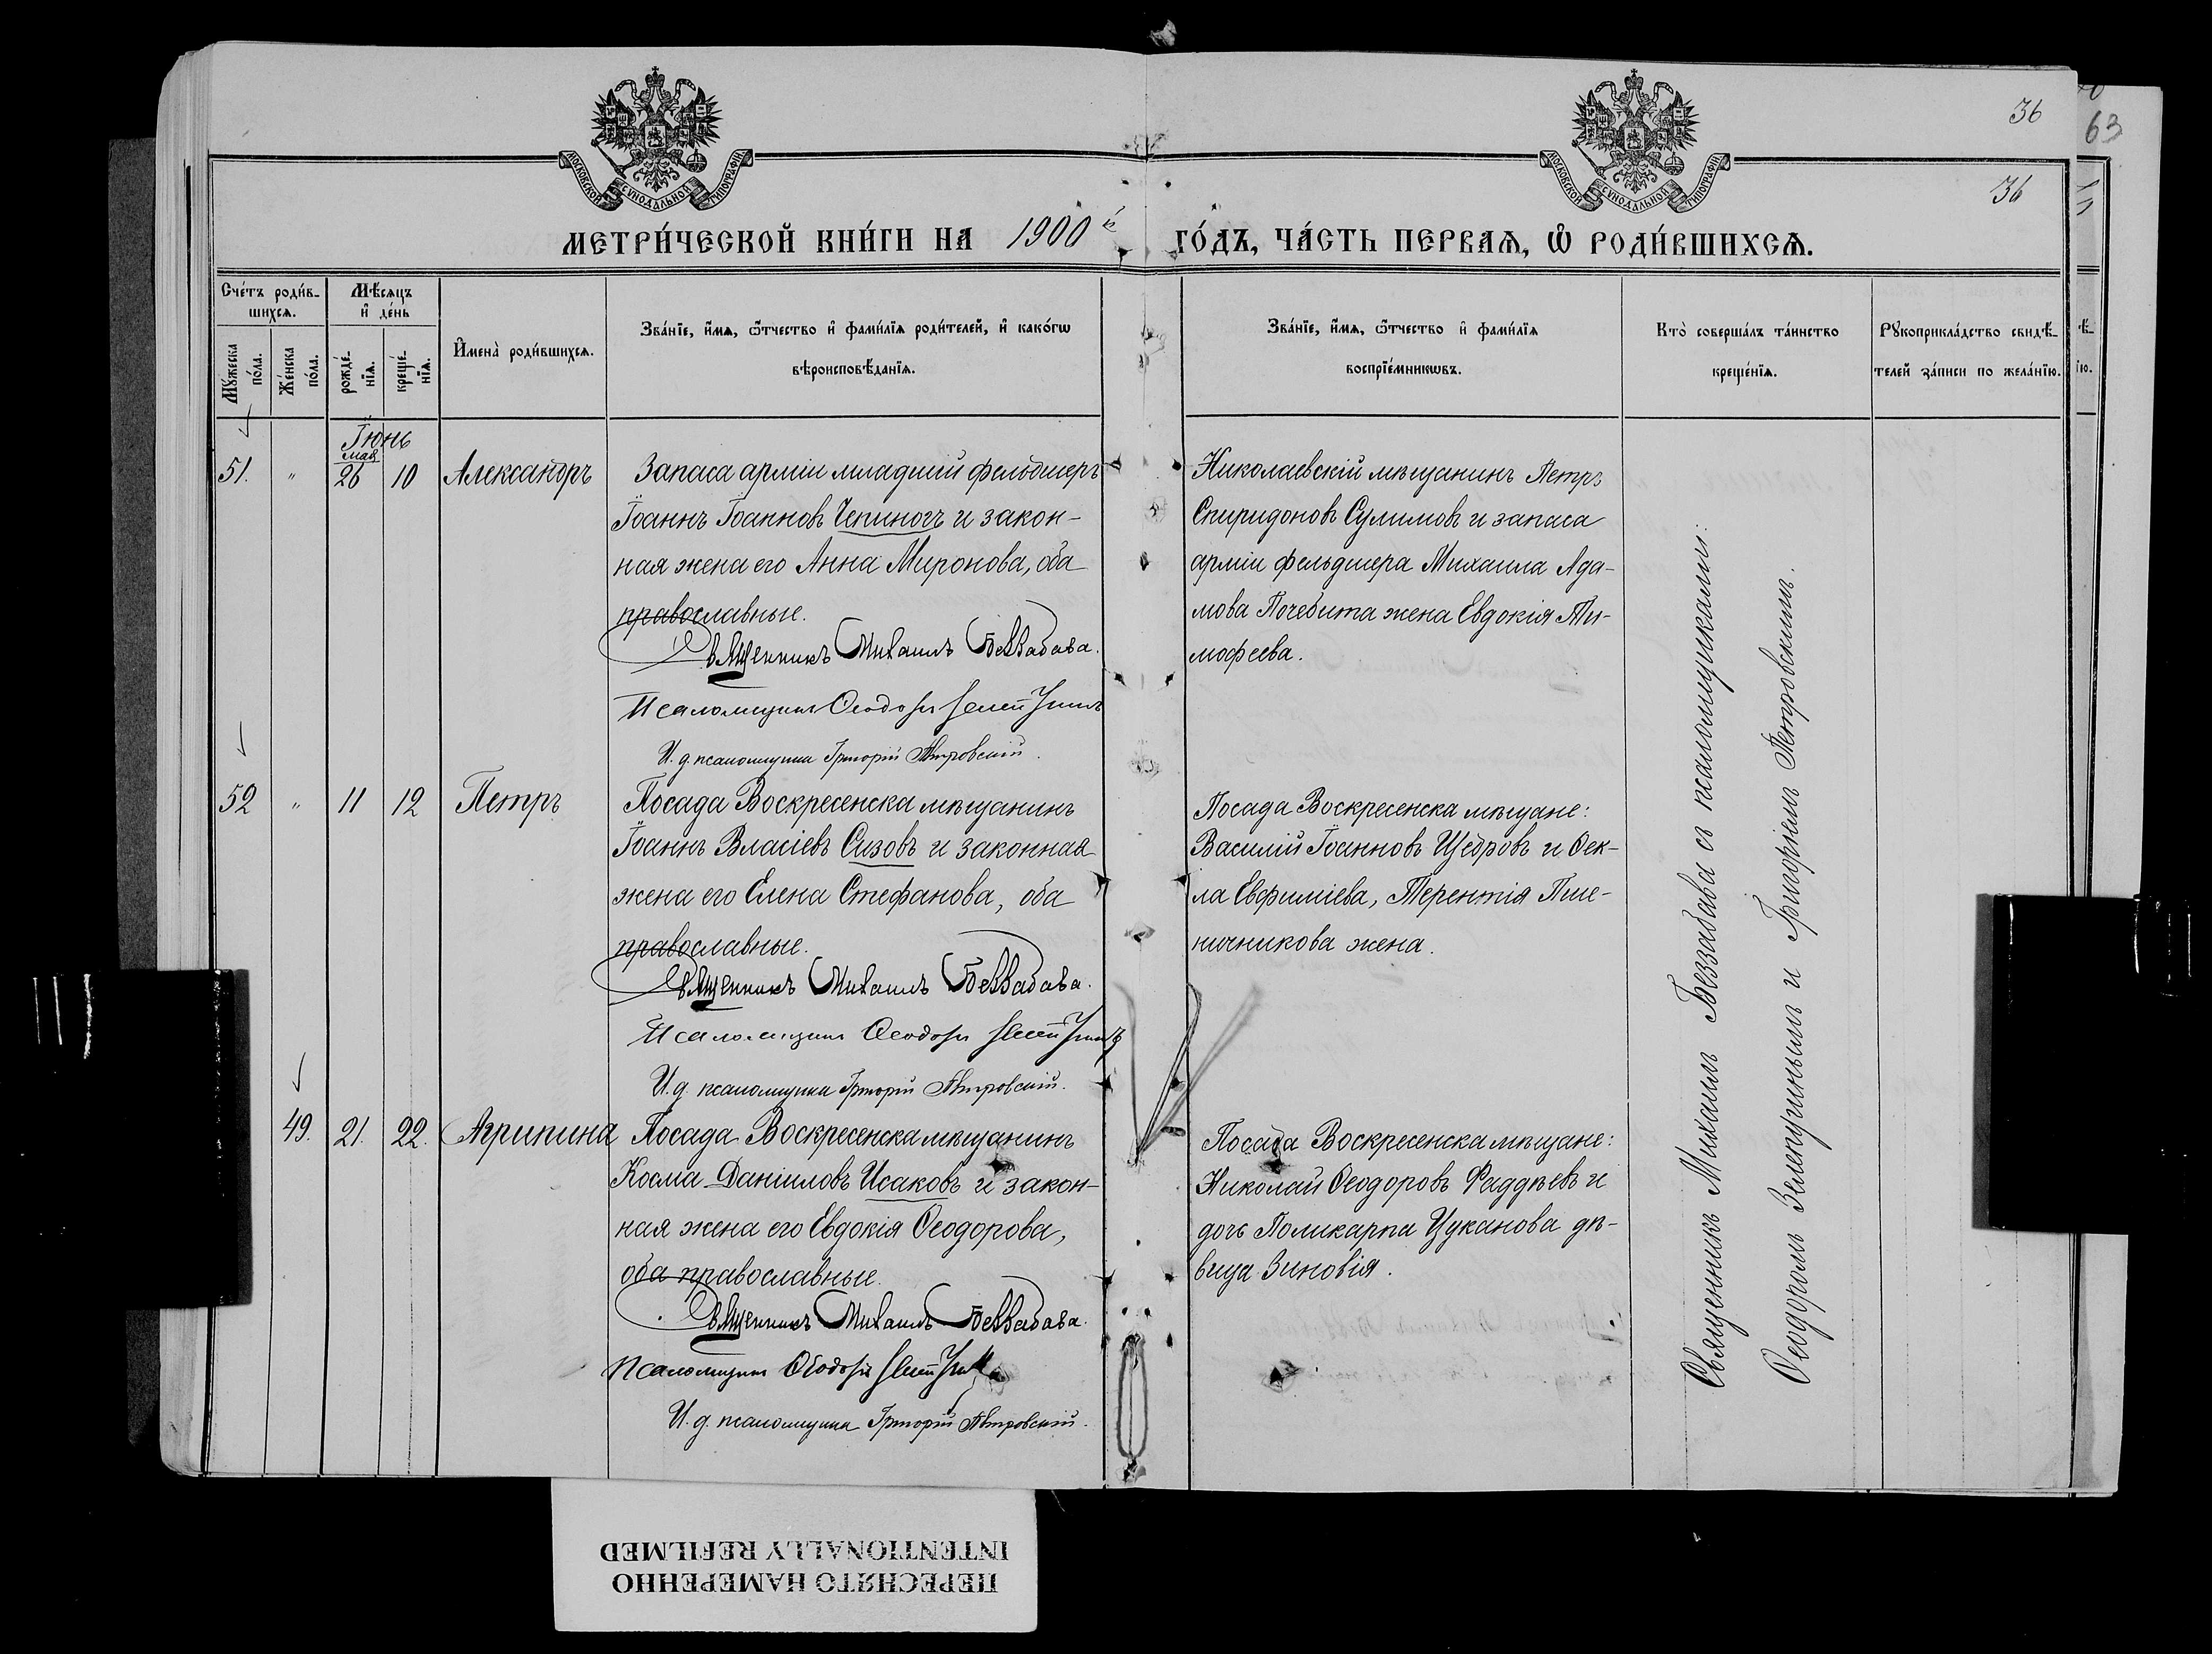 МОСКОВСКОЙ СѴНОДАЛЬНОЙ ТИПОГРАФІИ
МОСКОВСКОЙ СѴНОДАЛЬНОЙ ТИПОГРАФІИ
36
63
36
МЕТРИ́ЧЕСКОЙ КНИ́ГИ НА 1900й ГО́ДЪ, ЧА́СТЬ ПЕРВАѦ, Ѡ҆ РОДИ́ВШИХСѦ.
Сче́тъ роди́в-
шихсѧ.
Мꙋ́жеска по́ла.
Же́нска по́ла.
Мѣ́сѧцъ
и҆ де́нь
рожде́-
нїѧ.
креще́-
нїѧ.
И҆мена̀ роди́вшихсѧ.
Зва́нїе, и҆́мѧ, ѻ҆́тчество и҆ фами́лїѧ роди́телей, и҆ како́гѡ
вѣроисповѣ́данїѧ.
Зва́нїе, и҆́мѧ, ѻ҆́тчество и҆ фами́лїѧ
воспрїе́мникѡвъ.
Кто̀ соверша́лъ та́инство
креще́нїѧ.
Рꙋкоприкла́дство свидѣ́-
телей за́писи по жела́нїю.
Іюнь
мая
51. " 26 10 Александръ Запаса арміи младшій фельдшеръ
Іоаннъ Іоанновъ Чепиногъ и закон-
ная жена его Анна Миронова, оба
православные.
Священникъ Михаилъ Беззабава.
Псаломщикъ Ѳеодоръ
И. д. псаломщика Григорій Петровскій.
Николаевскій мѣщанинъ Петръ
Спиридоновъ Сулимовъ и запаса
арміи фельдшера Михаила Ада-
мова Почебита жена Евдокія Ти-
мофеева.
52 " 11 12 Петръ Посада Воскресенска мѣщанинъ
Іоаннъ Власіевъ Сизовъ и законная
жена его Елена Стефанова, оба
православные.
Священникъ Михаилъ Беззабава.
Псаломщикъ Ѳеодоръ
И. д. псаломщика Григорій Петровскій.
Посада Воскресенска мѣщане:
Василій Іоанновъ Щедровъ и Ѳек-
ла Евфиміева, Терентія Пше-
ничникова жена.
49. 21. 22. Агрипина Посада Воскресенска мѣщанинъ
Косма Даніиловъ Исаковъ и закон-
ная жена его Евдокія Ѳеодорова,
оба православные.
Священникъ Михаилъ Беззабава.
Псаломщикъ Ѳеодоръ
И. д. псаломщика Григорій Петровскій.
Посада Воскресенска мѣщане:
Николай Ѳеодоровъ Фаддѣевъ и
дочь Поликарпа Цуканова дѣ-
вица Зиновія.
Священникъ Михаилъ Беззабава съ псаломщиками:
Ѳеодоромъ Зелепугинымъ и Григоріемъ Петровскимъ.
ПЕРЕСНЯТО НАМЕРЕННО
INTENTIONALLY REFILMED